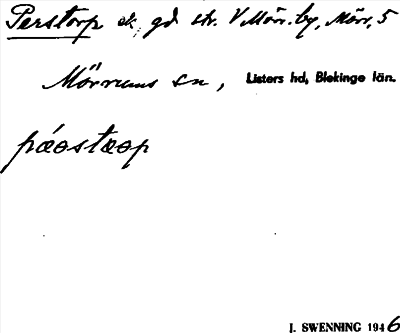 Perstorp ek. gd str. V Mörr. by, Mörr. 5
Mörrums sn, Listers hd, Blekinge län.
pǽɑstæɑp
J. SWENNING 1946